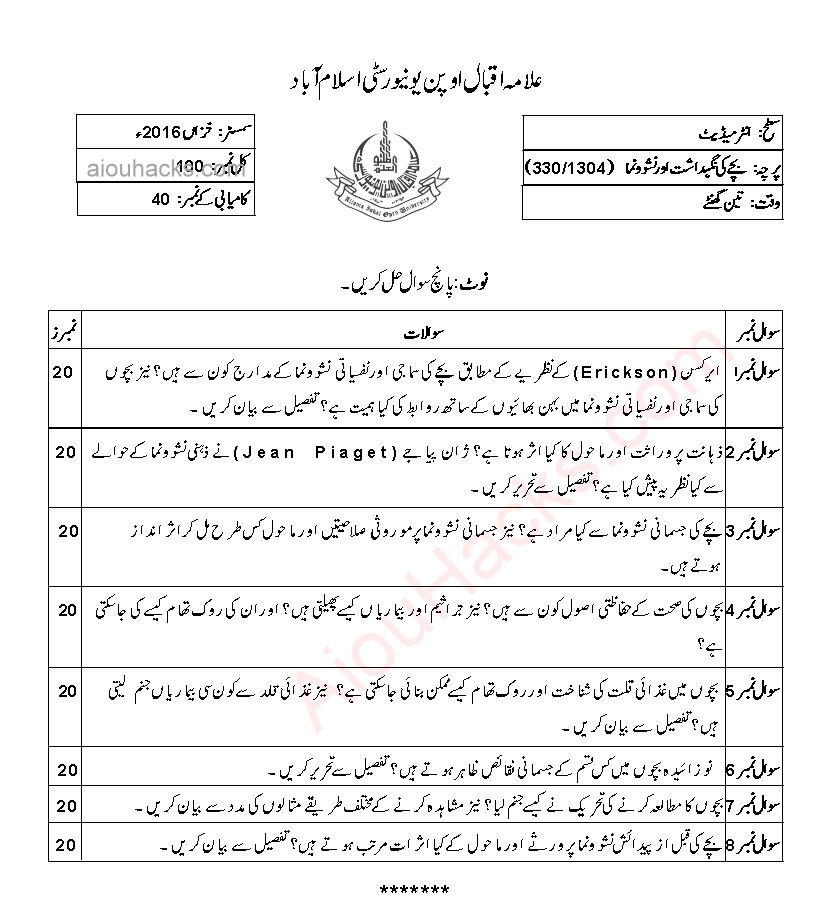 علامہ اقبال اوپن یونیورسٹی اسلام آباد
سطح: انٹرمیڈیٹ
سمسٹر: خزاں 2016ء
پرچہ: بچے کی نگہداشت اور نشوونما (330/1304)
کل نمبر: 100
aiouhacks.com
وقت: تین گھنٹے
کامیابی کے نمبر: 40
Allama Iqbal Open University
نوٹ: پانچ سوال حل کریں۔
سوال نمبر سوالات نمبرز
سوال نمبر1 ایرکسن (Erickson) کے نظریے کے مطابق بچے کی سماجی اور نفسیاتی نشوونما کے مدارج کون سے ہیں؟ نیز بچوں 20
کی سماجی اور نفسیاتی نشوونما میں بہن بھائیوں کے ساتھ روابط کی کیا اہمیت ہے؟ تفصیل سے بیان کریں ۔
سوال نمبر 2 ذہانت پر وراثت اور ماحول کا کیا اثر ہوتا ہے؟ ژان پیاجے (Jean Piaget) نے ذہنی نشوونما کے حوالے 20
سے کیا نظریہ پیش کیا ہے؟ تفصیل سے تحریر کریں ۔
سوال نمبر 3 بچے کی جسمانی نشوونما سے کیا مراد ہے؟ نیز جسمانی نشوونما پر موروثی صلاحیتیں اور ماحول کس طرح مل کر اثر انداز 20
ہوتے ہیں۔
سوال نمبر 4 بچوں کی صحت کے حفاظتی اصول کون سے ہیں؟ نیز جراثیم اور بیماریاں کیسے پھیلتی ہیں؟ اور ان کی روک تھام کیسے کی جاسکتی 20
ہے؟
سوال نمبر 5 بچوں میں غذائی قلت کی شناخت اور روک تھام کیسے ممکن بنائی جاسکتی ہے؟ نیز غذائی قلد سے کون سی بیماریاں جنم لیتی 20
ہیں؟ تفصیل سے بیان کریں ۔
سوال نمبر 6 نوزائیدہ بچوں میں کس قسم کے جسمانی نقائص ظاہر ہوتے ہیں؟ تفصیل سے تحریر کریں ۔ 20
سوال نمبر 7 بچوں کا مطالعہ کرنے کی تحریک نے کیسے جنم لیا؟ نیز مشاہدہ کرنے کے مختلف طریقے مثالوں کی مدد سے بیان کریں ۔ 20
سوال نمبر 8 بچے کی قبل از پیدائش نشوونما پر ورثے اور ماحول کے کیا اثرات مرتب ہوتے ہیں؟ تفصیل سے بیان کریں ۔ 20
*******
AiouHacks.com